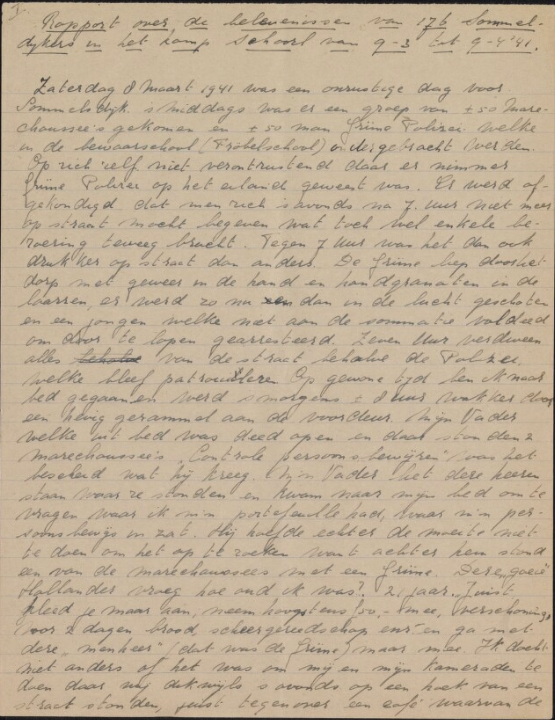 Rapport over de belevenissen van 176 Sommel-
dijkers in het kamp Schoorl van 9-3 tot 9-4 '41.
Zaterdag 8 Maart 1941 was een onrustige dag voor
Sommelsdijk. s'middags was er een groep van ± 50 Mare-
chaussee's gekomen en ± 50 man Grüne Polizei welke
in de bewaarschool (Fröbelschool) ondergebracht werden.
Op zich zelf niet verontrustend daar er nimmer
Grüne Polizei op het eiland geweest was. Er werd af-
gekondigd dat men zich s'avonds na 7 Uur niet meer
op straat mocht begeven wat toch wel enkele be-
roering teweeg bracht. Tegen 7 Uur was het dan ook
drukker op straat dan anders. De Grüne liep door het
dorp met geweer in de hand en handgranaten in de
laarzen, er werd zo nu en dan in de lucht geschoten
en een jongen welke niet aan de sommatie voldeed
om door te lopen gearresteerd. Zeven Uur verdween
alles behalve van de straat behalve de Polizei
welke bleef patrouilleren. Op gewone tijd ben ik naar
bed gegaan en werd s'morgens ± 8 uur wakker door
een hevig gerammel aan de voordeur. Mijn Vader
welke uit bed was deed open en daar stonden 2
marechaussee's. "Controle persoonsbewijzen" was het
bescheid wat hij kreeg. Mijn Vader liet deze heeren
staan waar ze stonden en kwam naar mijn bed om te
vragen waar ik m'n portefeuille had, waar m'n per-
soonsbewijs in zat. Hij hoefde echter de moeite niet
te doen om het op te zoeken want achter hem stond
een van de marechaussees met een Grüne. Deze "goeie"
Hollander vroeg hoe oud ik was? 21 jaar. Juist
kleed je maar aan, neem hoogstens ƒ50,- mee, verschoning
voor 2 dagen brood scheergereedschap enz. en ga met
deze "menheer" (dat was de Grüne) maar mee. Ik dacht
niet anders of het was om mij en mijn kameraden te
doen daar wij dikwijls s'avonds op een hoek van een
straat stonden, juist tegenover een café waarvan de